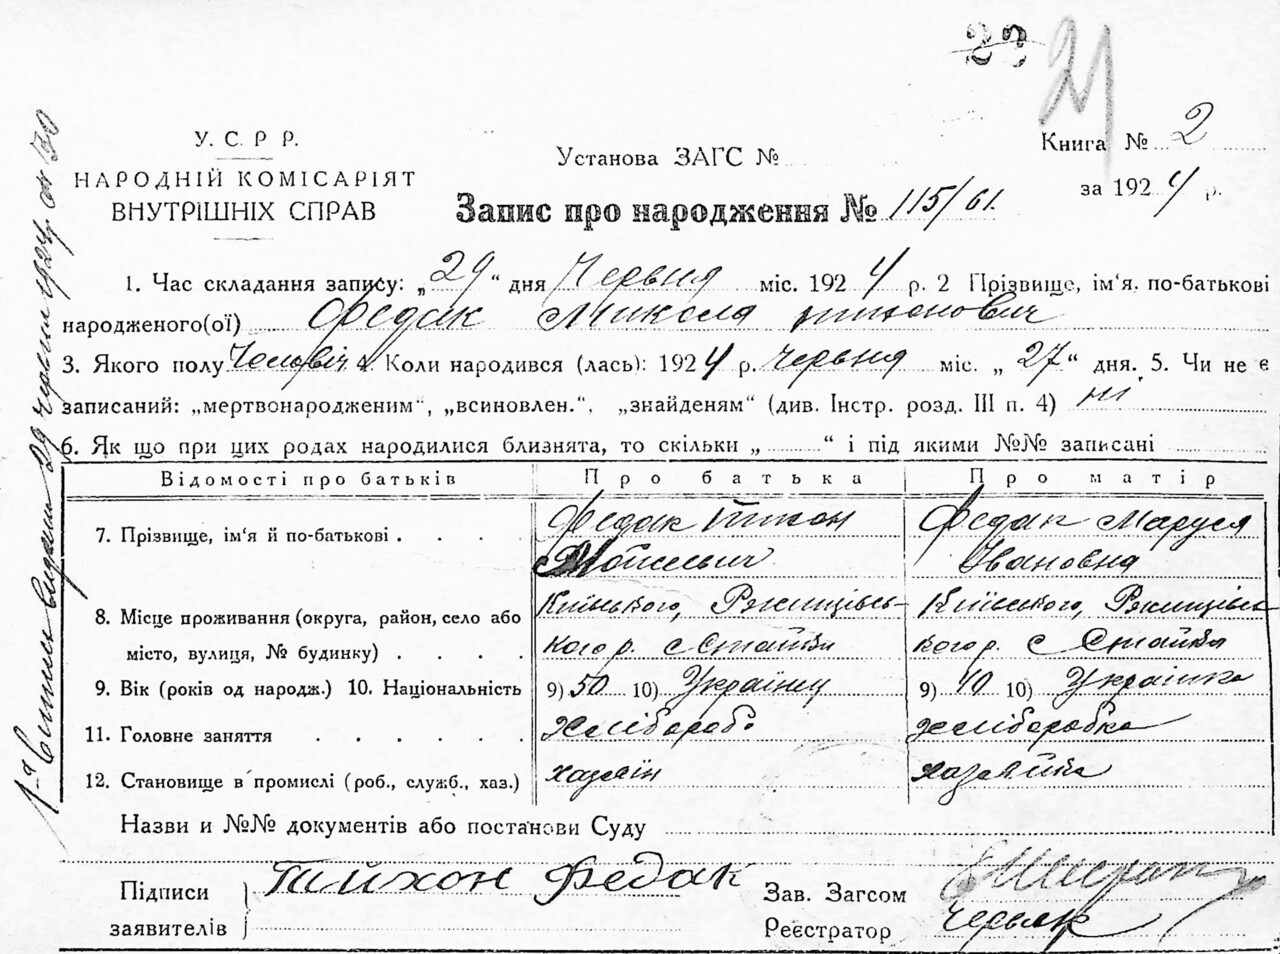 23 21
У. С. Р Р.
НАРОДНІЙ КОМІСАРІЯТ
ВНУТРІШНІХ СПРАВ
Установа ЗАГС №
Книга № 2
за 1924 р.
Запис про народження № 115/61.
1. Час складання запису: „29“ дня Червня міс. 1924 р. 2 Прізвище, ім'я. по-батькові
народженого(ої) Федак Микола Тихонович
3. Якого полу Чоловіч. 4. Коли народився (лась): 1924 р. червня міс. „27“ дня. 5. Чи не є
записаний: „мертвонародженим“, „всиновлен.“, „знайденям“ (див. Інстр. розд. III п. 4) ні
6. Як що при цих родах народилися близнята, то скільки „ “ і під якими №№ записані
Відомості про батьків Про батька Про матір
7. Прізвище, ім'я й по-батькові . . . . Федак Тихон Федак Маруся
Мойсеевич Івановна
Київського, Ржищівсь- Київського, Ржищівсь-
8. Місце проживання (округа, район, село або
місто, вулиця, № будинку) . . . . кого р. с Стайки кого р. с Стайки
9. Вік (років од народж.) 10. Національність 9) 50 10) Українец 9) 40 10) Українка
11. Головне заняття . . . . . . Хлібороб хлiборобка
12. Становище в промислі (роб., служб., хаз.) хазяїн хазяйка
Назви и №№ документів або постанови Суду
Підписи
заявителів
Тихон Федак
Зав. Загсом
Реєстратор Червяк
1-а Випис видана 29 червня 1924 р. за № 70